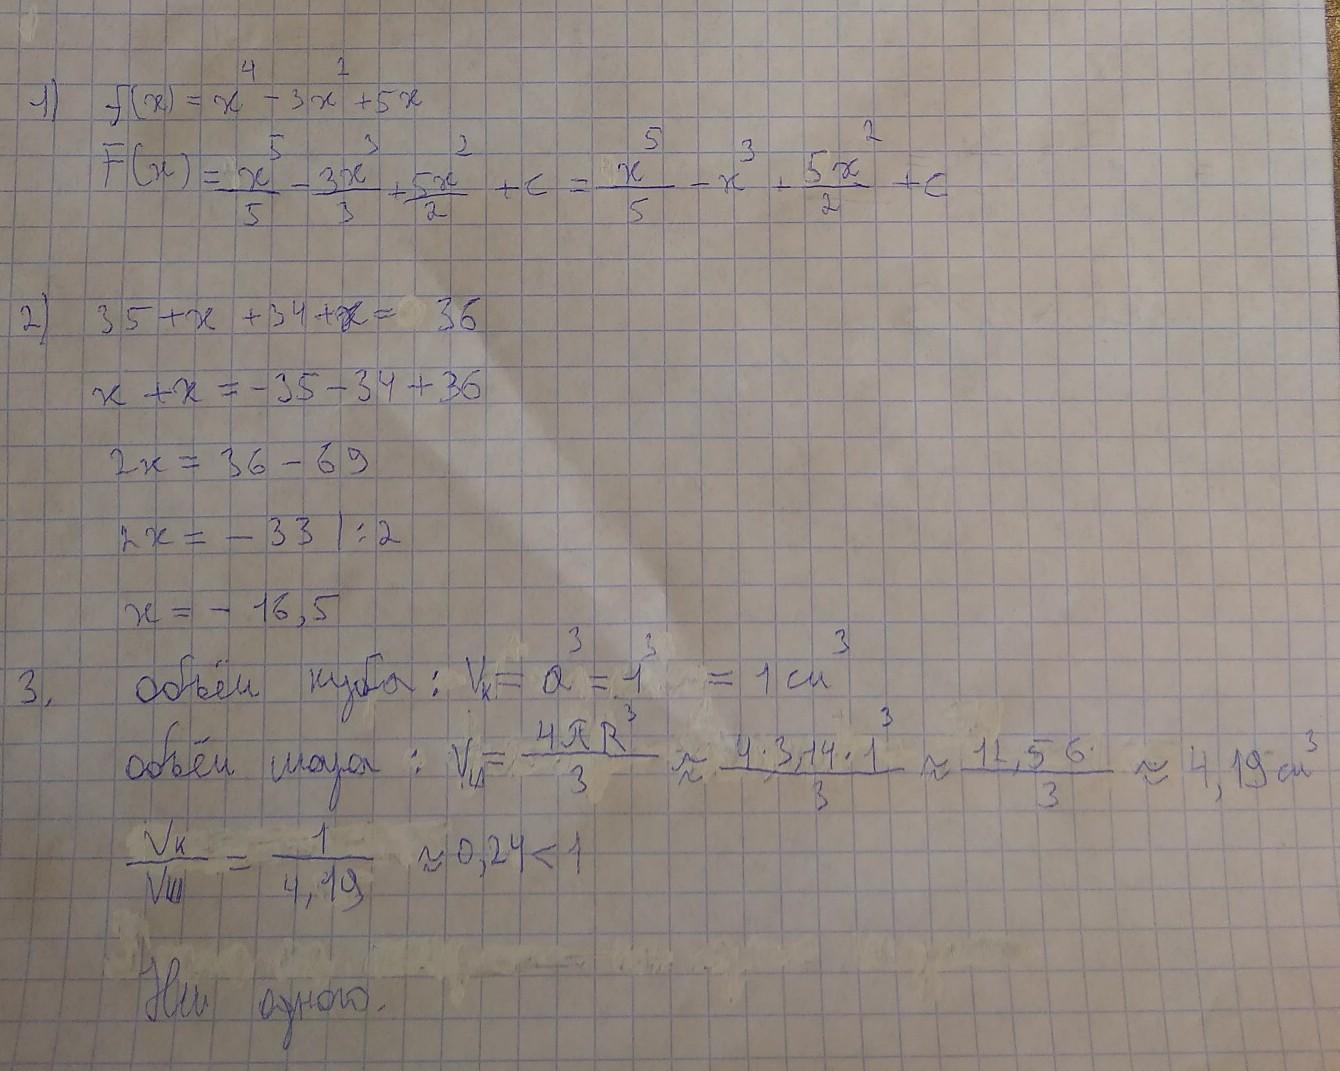 1) f(x) = x⁴ - 3x² + 5x
F(x) = x⁵/5 - 3x³/3 + 5x²/2 + c = x⁵/5 - x³ + 5x²/2 + c
2) 35 + x + 34 + x = 36
x + x = -35 - 34 + 36
2x = 36 - 69
2x = - 33 | : 2
x = - 16,5
3. объём куба : Vк = a³ = 1³ = 1 см³
объём шара : Vш = 4πR³/3 ≈ 4·3,14·1³/3 ≈ 12,56/3 ≈ 4,19 см³
Vк/Vш = 1/4,19 ≈ 0,24 < 1
Ни одного.